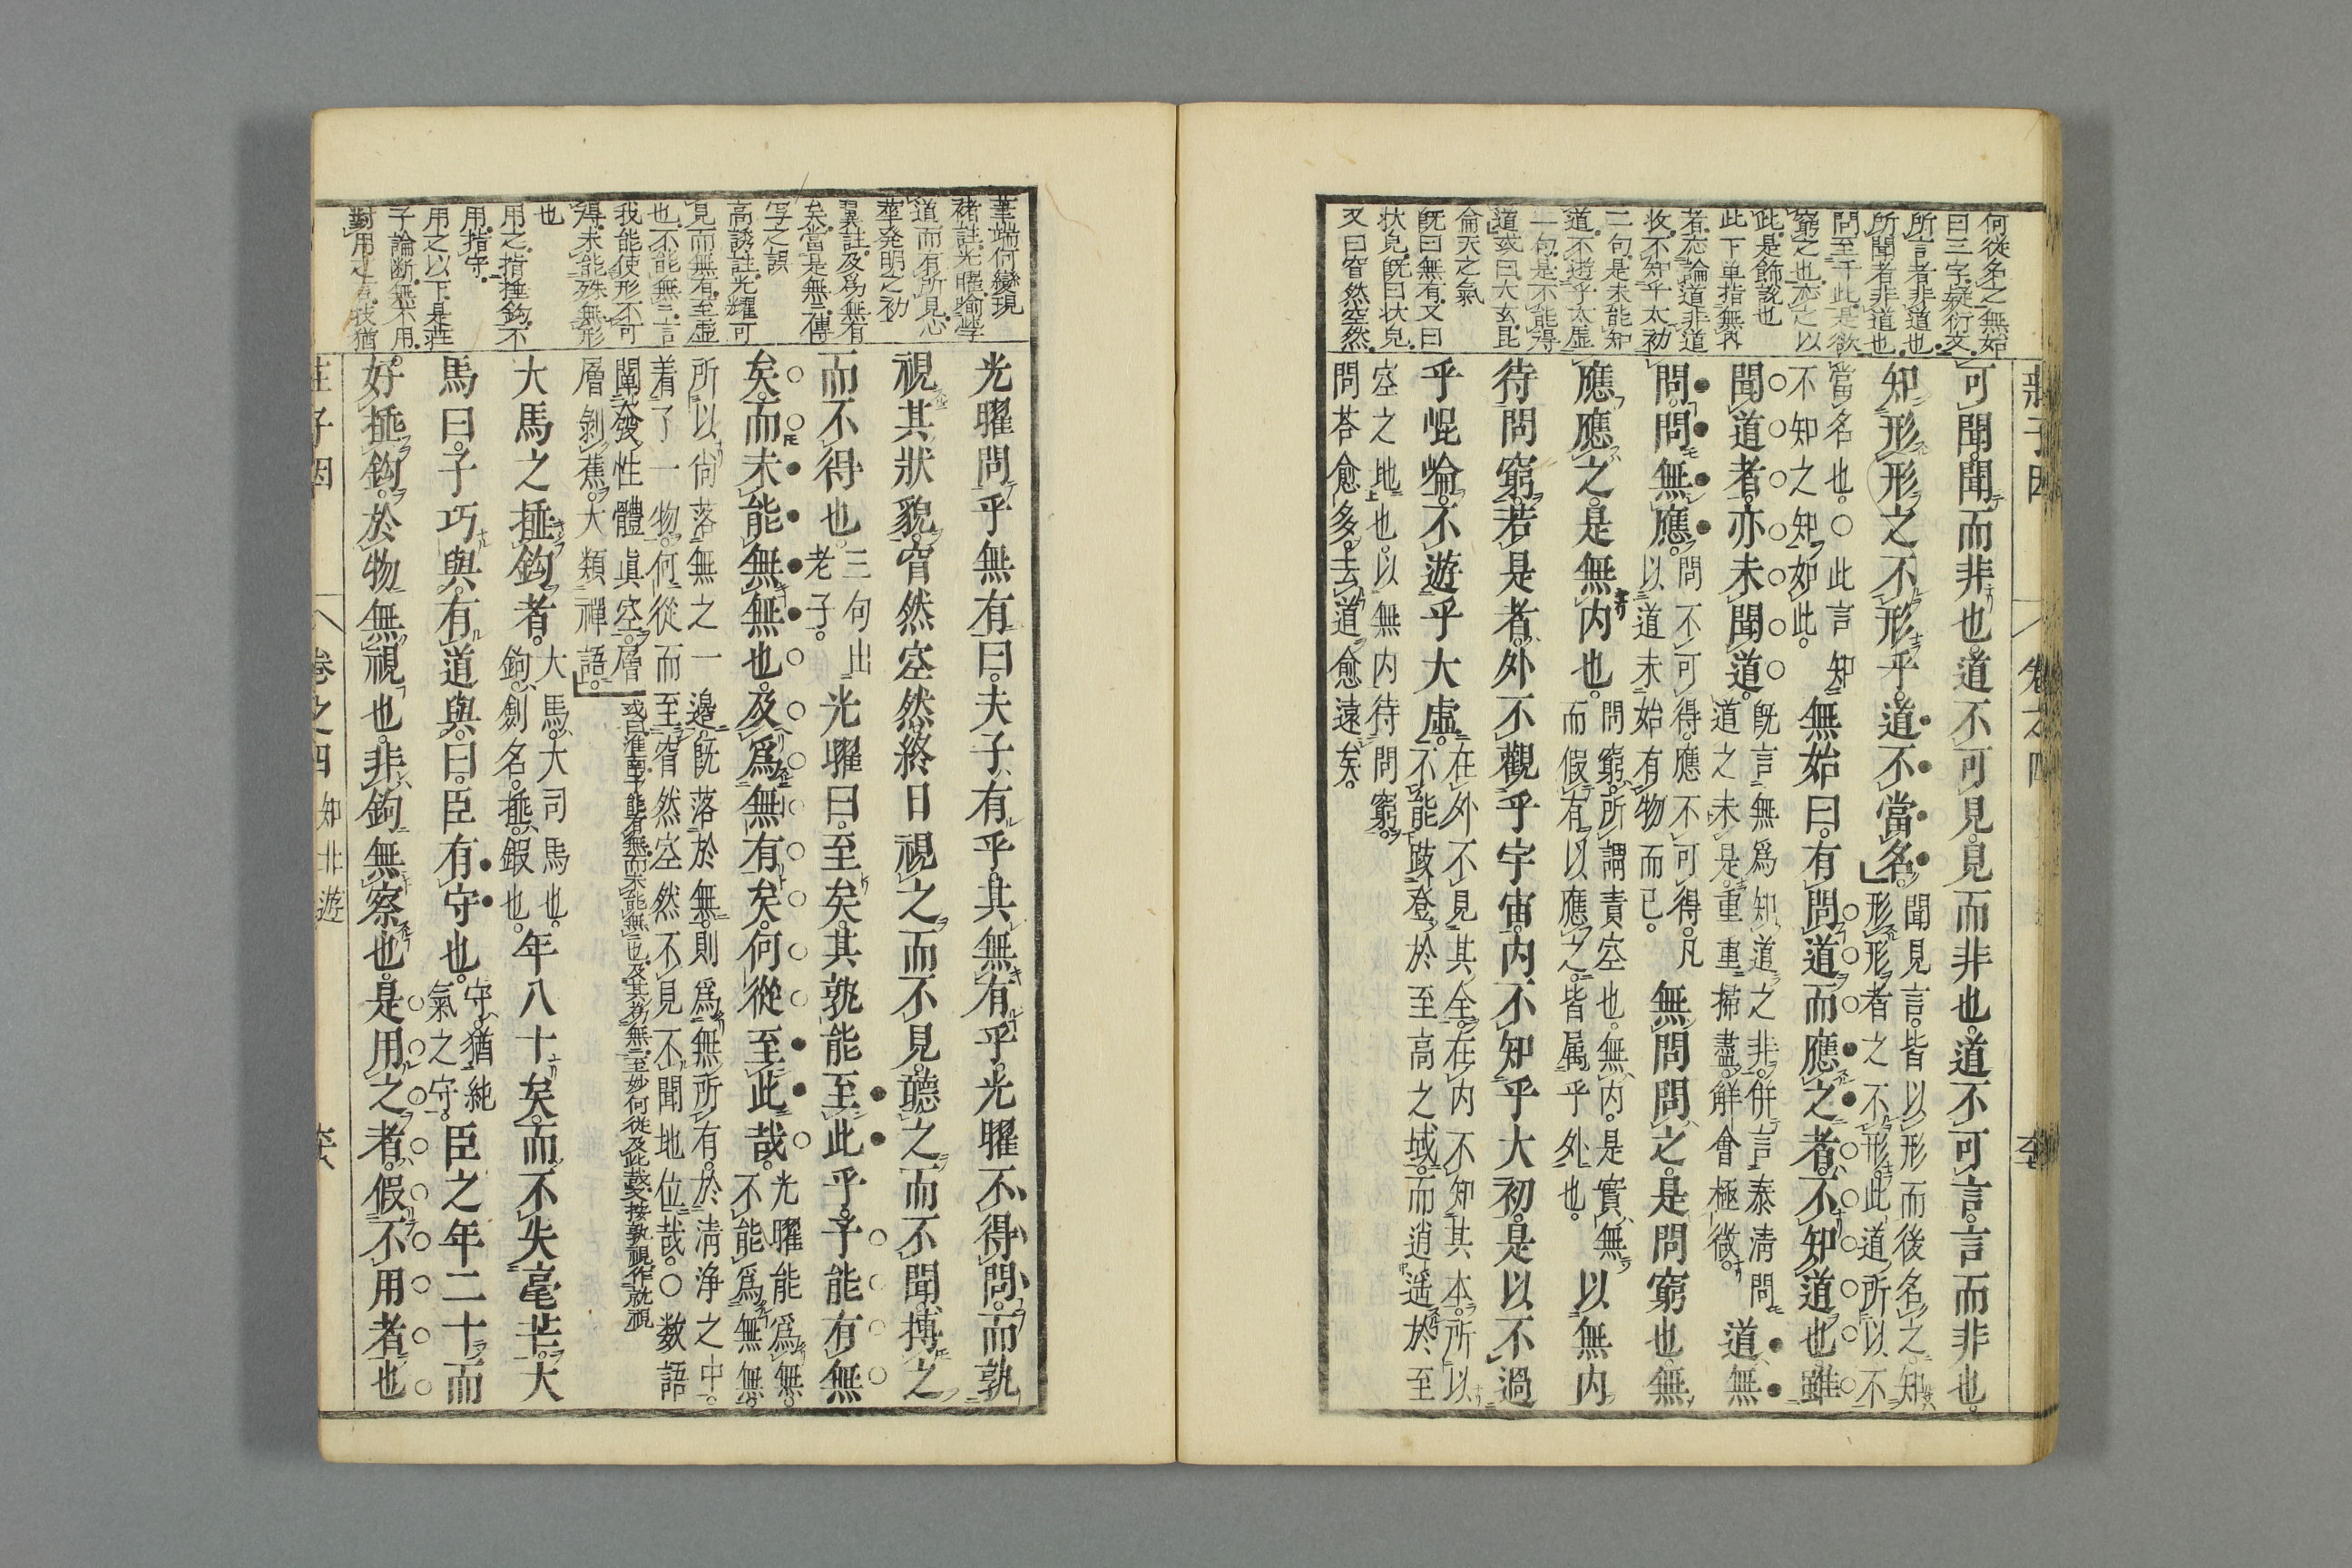 何從名之無始
曰三字疑衍文
所言者非道也
所聞者非道也
問至于此是欲
窮之也亦之以
此是飾說也
此下单指無内
者亦論道非道
收不知乎太初
二句是未能知
道不遊乎太虛
一句是不能得
道或曰大玄昆
侖天之氣
既曰無有又曰
状皃既曰状皃
又曰窅然空然
可聞聞而非也道不可見見而非也道不可言言而非也
知形形之不形乎道不當名
聞見言皆以形而後名之知
形形者之不形此道所以不
當名也○此言知
不知之知如此
無始曰有問道而應之者不知道也雖
聞道者亦未聞道
既言無爲知道之非併言泰清問
道之未是重重掃盡解會極微
道無
問問無應
問不可得應不可得凡
以道未始有物而已
無問問之是問窮也無
應應之是無内也
問窮所謂責空也無内是實無
而假有以應之皆属乎外也
以無内
待問窮若是者外不觀乎宇宙内不知乎大初是以不過
乎崐崘不遊乎大虛
在外不見其全在内不知其本所以
不能跂登於至高之域而逍遥於至
空之地也以無内待問窮
問荅愈多去道愈遠矣
莊子因 卷之四
華端何變現
褚註光曜喻學
道而有所見心
華発明之初
異註及爲無有
矣當是無無傳
写之誤
高誘註光耀可
見而無有至虛
也不能無無言
我能使形不可
得未能殊無形
也
用之指捶鈎不
用指守
用之以下是莊
子論断無不用
對用之言彼猶
光曜問乎無有曰夫子有乎其無有乎光曜不得問而孰
視其狀貌窅然空然終日視之而不見聽之而不聞搏之
而不得也
三句出
老子
光曜曰至矣其孰能至此乎予能有無
矣而未能無無也及爲無有矣何從至此哉
光曜能爲無
不能爲無無
所以尚落無之一邊既落於無則爲無所有於淸浄之中
着了一物何從而至窅然空然不見不聞地位哉○数語
闡發性體眞空層
層剝蕉大類禪語
或曰淮南子能有無而未能無無也及其爲無無至妙何從及此哉文按孰視作就視
大馬之捶鈎者
大馬大司馬也
鉤劍名捶鍜也
年八十矣而不失毫芒大
馬曰子巧與有道與曰臣有守也
守猶純
氣之守
臣之年二十而
好捶鈎於物無視也非鉤無察也是用之者假不用者也
莊子因 卷之四 知北遊